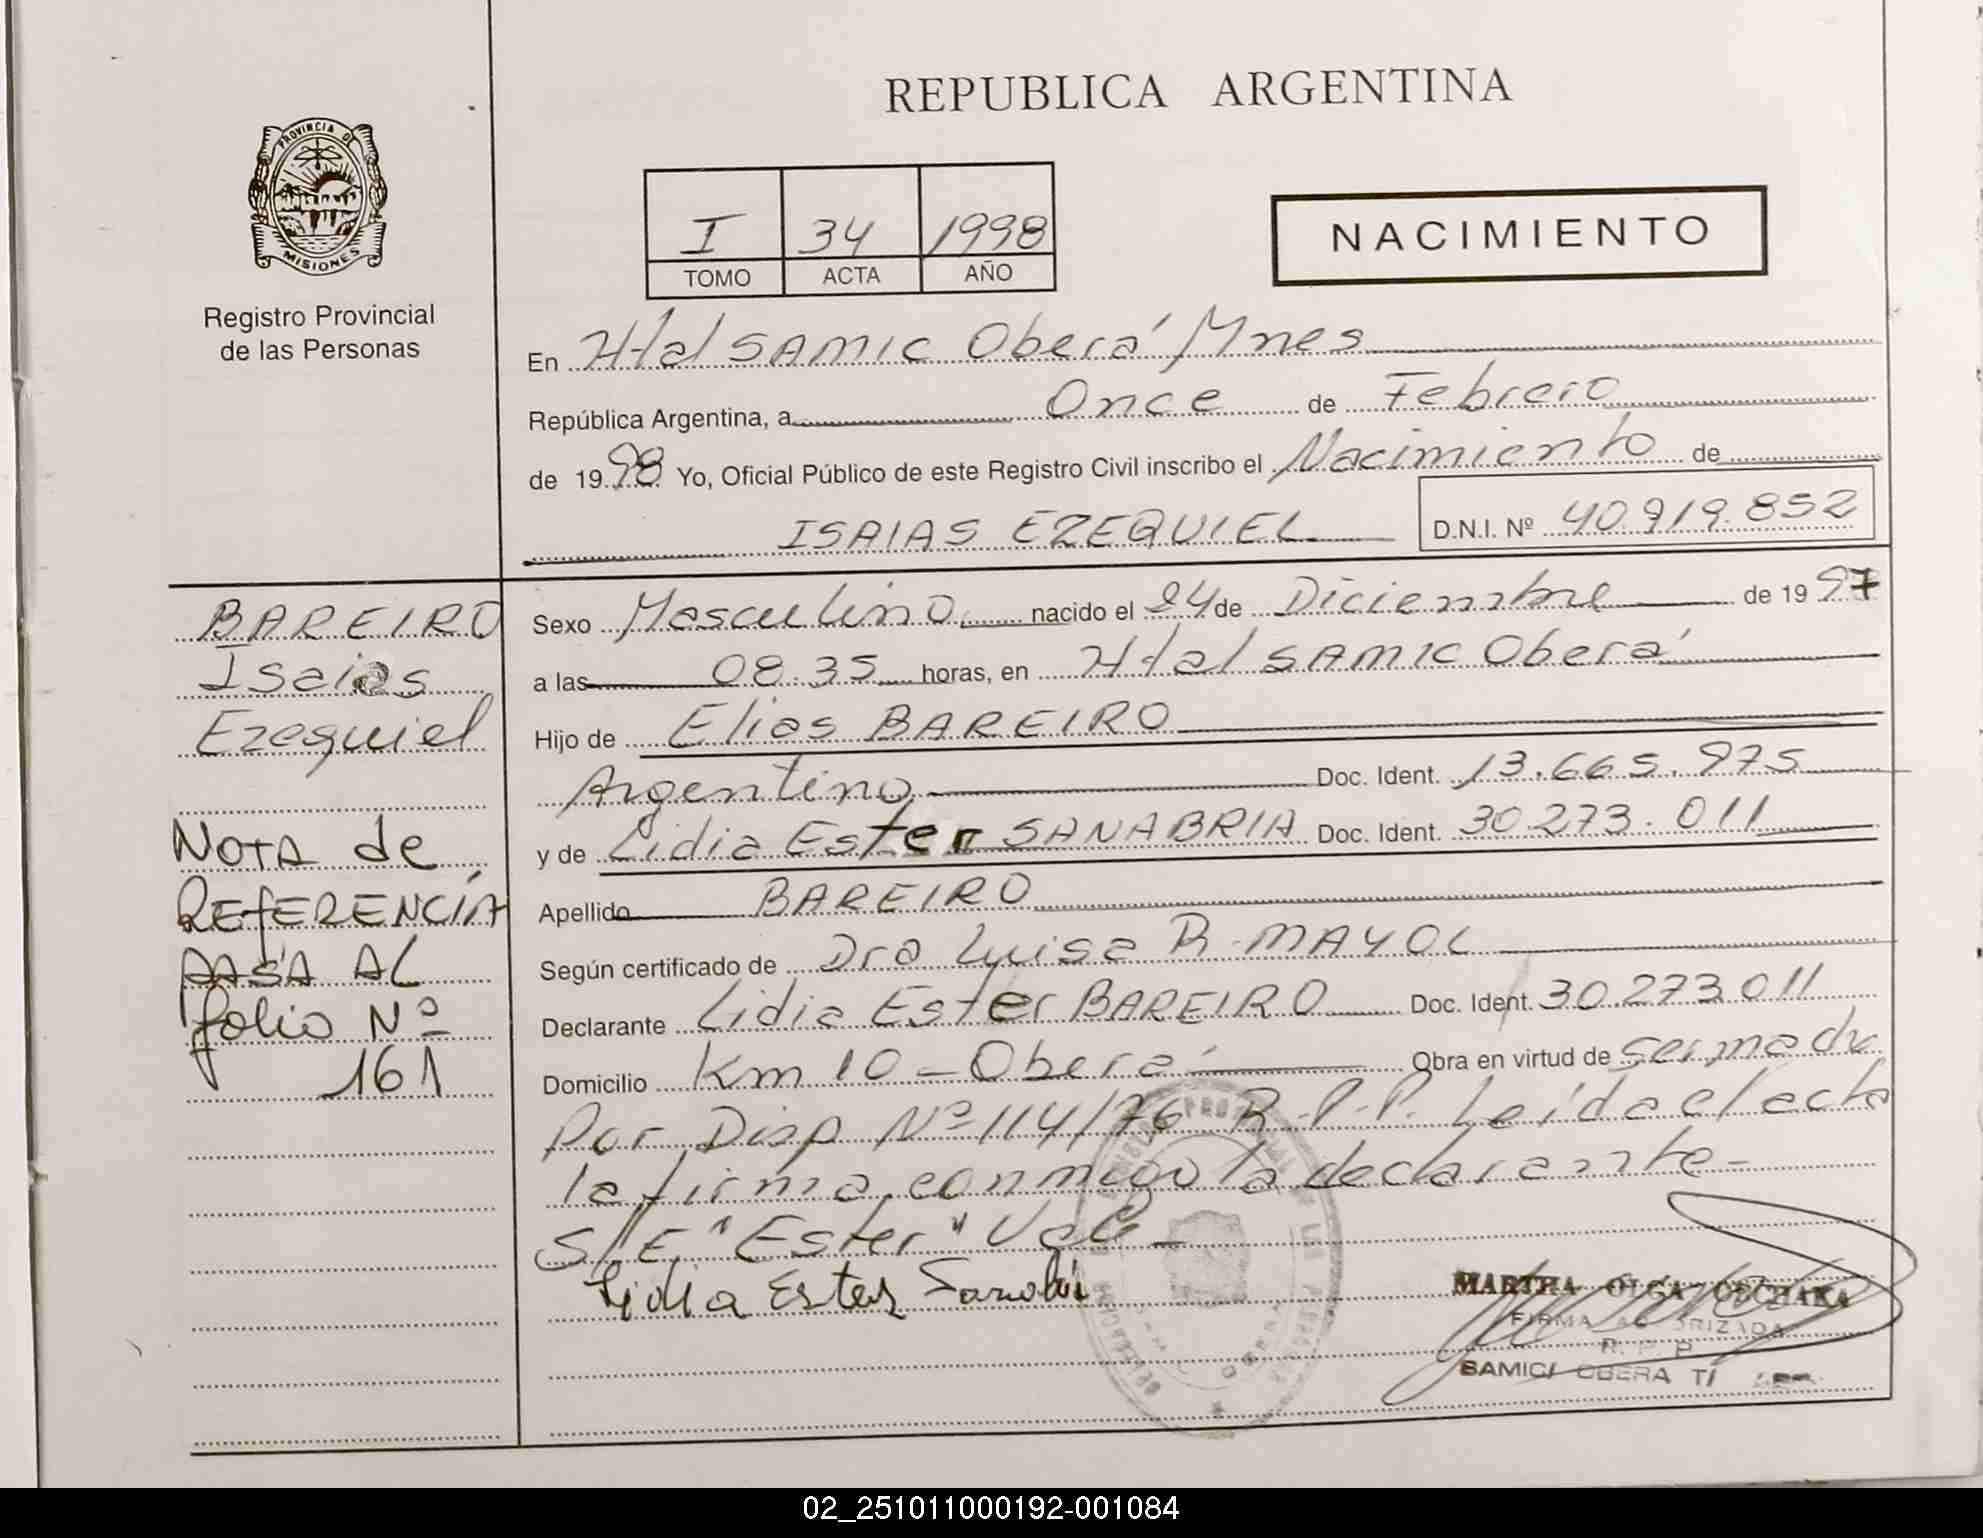 REPUBLICA ARGENTINA
PROVINCIA DE
MISIONES
Registro Provincial
de las Personas
I 34 1998
TOMO ACTA AÑO
NACIMIENTO
En Htal SAMIC Oberá Mnes
República Argentina, a Once de Febrero
de 1998 Yo, Oficial Público de este Registro Civil inscribo el Nacimiento de
ISAIAS EZEQUIEL D.N.I. Nº 40.919.852
BAREIRO
Isaias
Ezequiel
NOTA de
REFERENCIA
PASA AL
folio Nº
161
Sexo Masculino nacido el 24 de Diciembre de 1997
a las 08.35 horas, en Htal SAMIC Oberá
Hijo de Elias BAREIRO
Argentino Doc. Ident. 13.665.975
y de Lidia Ester SANABRIA Doc. Ident. 30.273.011
Apellido BAREIRO
Según certificado de Dra Luisa R. MAYOL
Declarante Lidia Ester BAREIRO Doc. Ident. 30.273.011
Domicilio Km 10 - Oberá Obra en virtud de ser madre
Por Disp Nº 114/76 R.P.P. Leída el acta
la firma conmigo la declarante -
S/E "Ester" Vale -
Lidia Ester Sanabri
MARTHA OLGA
FIRMA AUTORIZADA
R. P. P.
SAMIC/ OBERA
02_251011000192-001084